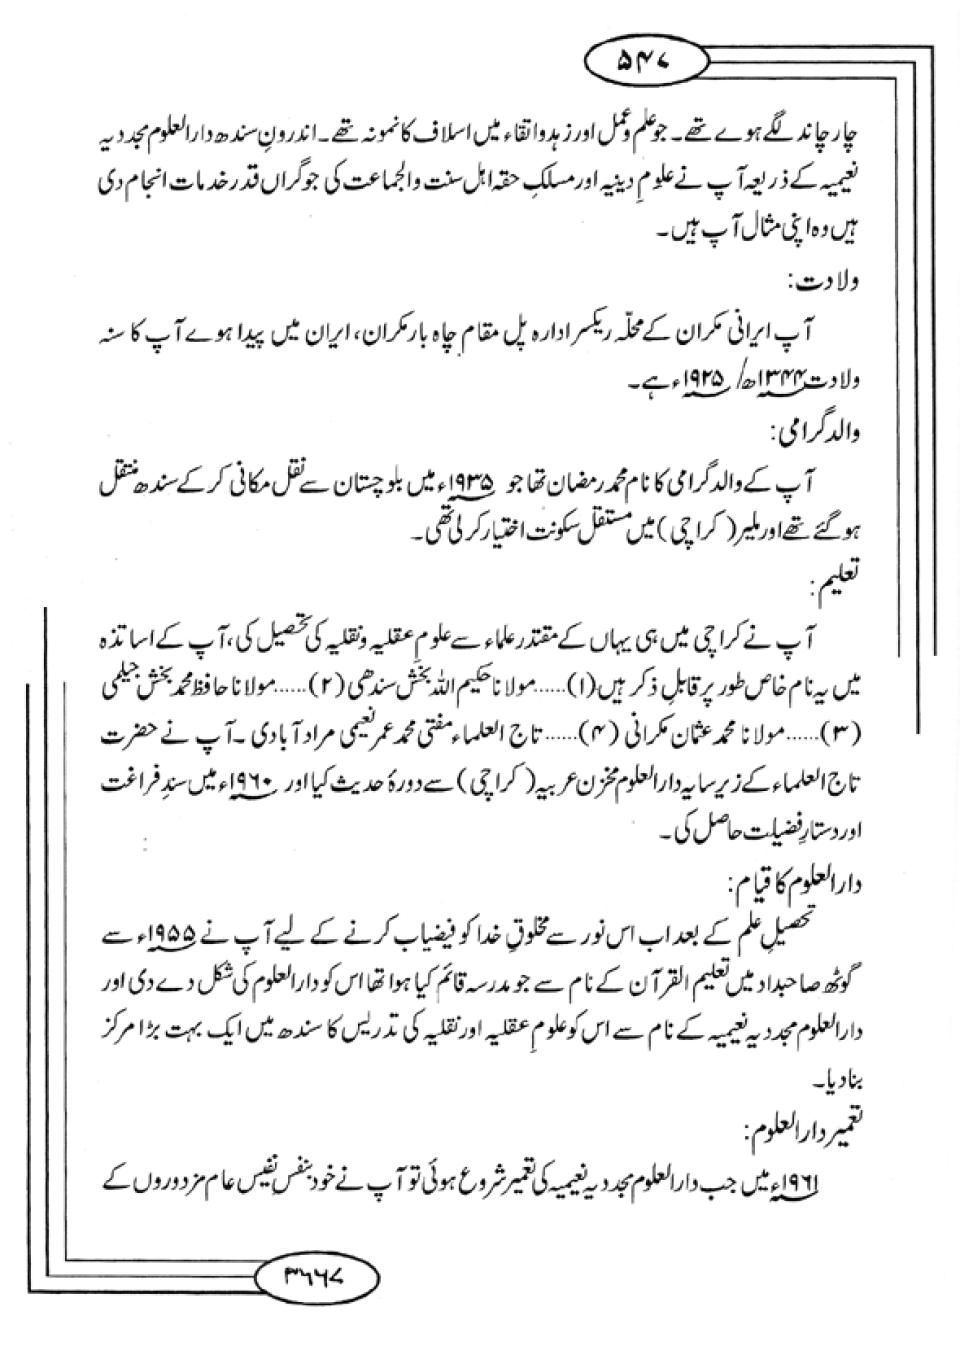 ۵۴۷
چار چاند لگے ہوے تھے۔ جو علم و عمل اور زہد و اتقاء میں اسلاف کا نمونہ تھے۔ اندرونِ سندھ دارالعلوم مجددیہ
نعیمیہ کے ذریعہ آپ نے علومِ دینیہ اور مسلکِ حقہ اہل سنت والجماعت کی جو گراں قدر خدمات انجام دی
ہیں وہ اپنی مثال آپ ہیں۔
ولادت:
آپ ایرانی مکران کے محلّہ ریکسر ادارہ پل مقام چاہ بار مکران، ایران میں پیدا ہوے آپ کا سنہ
ولادت ۱۳۴۴ھ/ ۱۹۲۵ء ہے۔
والد گرامی:
آپ کے والد گرامی کا نام محمد رمضان تھا جو ۱۹۳۵ء میں بلوچستان سے نقل مکانی کر کے سندھ منتقل
ہو گئے تھے اور ملیر (کراچی) میں مستقل سکونت اختیار کر لی تھی۔
تعلیم:
آپ نے کراچی میں ہی یہاں کے مقتدر علماء سے علومِ عقلیہ و نقلیہ کی تحصیل کی، آپ کے اساتذہ
میں یہ نام خاص طور پر قابلِ ذکر ہیں (۱)......مولانا حکیم اللہ بخش سندھی (۲)......مولانا حافظ محمد بخش جیلمی
(۳)......مولانا محمد عثمان مکرانی (۴)......تاج العلماء مفتی محمد عمر نعیمی مراد آبادی۔ آپ نے حضرت
تاج العلماء کے زیر سایہ دارالعلوم مخزن عربیہ (کراچی) سے دورۂ حدیث کیا اور ۱۹۶۰ء میں سندِ فراغت
اور دستارِ فضیلت حاصل کی۔
دارالعلوم کا قیام:
تحصیلِ علم کے بعد اب اس نور سے مخلوقِ خدا کو فیضیاب کرنے کے لیے آپ نے ۱۹۵۵ء سے
گوٹھ صاحبداد میں تعلیم القرآن کے نام سے جو مدرسہ قائم کیا ہوا تھا اس کو دارالعلوم کی شکل دے دی اور
دارالعلوم مجددیہ نعیمیہ کے نام سے اس کو علومِ عقلیہ اور نقلیہ کی تدریس کا سندھ میں ایک بہت بڑا مرکز
بنادیا۔
تعمیر دارالعلوم:
۱۹۶۱ء میں جب دارالعلوم مجددیہ نعیمیہ کی تعمیر شروع ہوئی تو آپ نے خود بنفسِ نفیس عام مزدوروں کے
۳۶۶۷